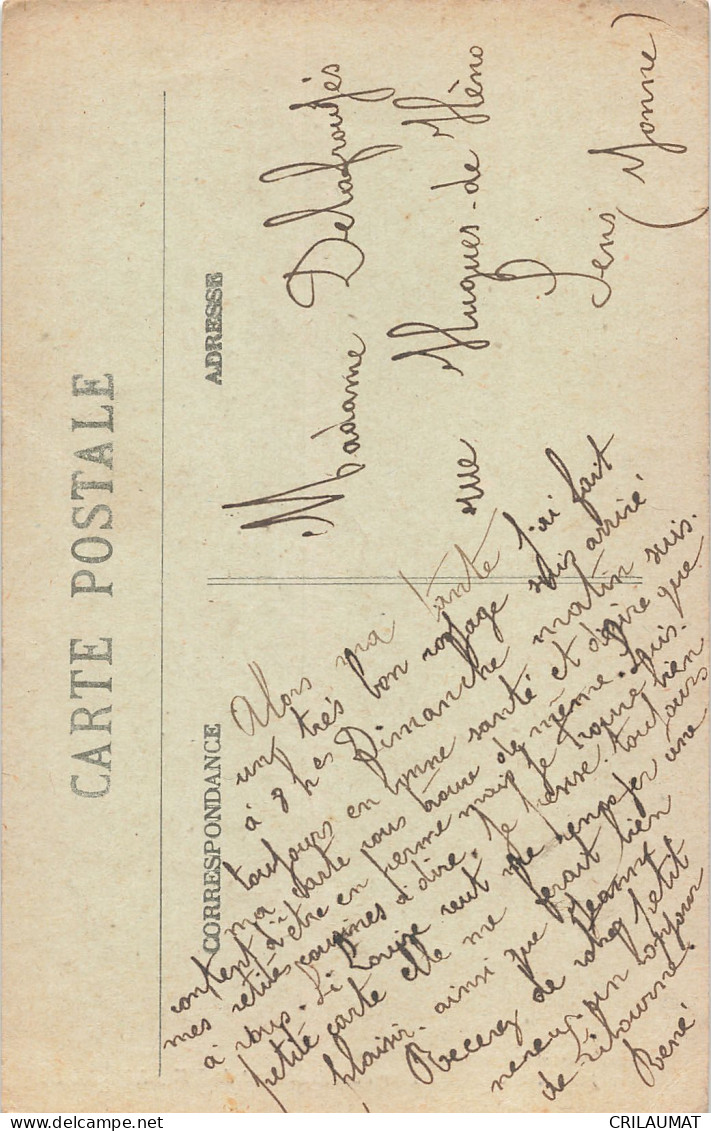 CARTE POSTALE
CORRESPONDANCE
ADRESSE
Alors ma tante j'ai fait
un très bon voyage suis arrivé
à 8 hes Dimanche matin suis
toujours en bonne santé et désire que
ma carte vous trouve de même. Suis
content d'être en perme mais je trouve bien
mes petites cousines à dire. Je pense toujours
à vous. Si Louise veut me renvoyer une
petite carte elle me ferait bien
plaisir ainsi que Jeanne
Recevez de votre petit
neveux un
de retourne.
René
Madame Delagroujés
rue Hugues-de
Sens (Yonne)
CRILAUMAT